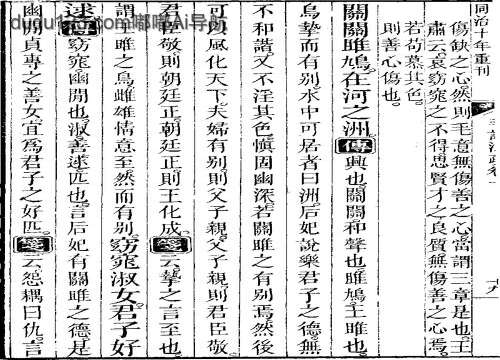 同治十年重刊
十九
傷缺之心然則毛意無傷善之心當謂三章是也王
肅云哀窈窕之不得思賢才之良質無傷善之心焉
若苟慕其色
則善心傷也
關關雎鳩在河之洲傳興也關關和聲也雎鳩王雎也
鳥摯而有別水中可居者曰洲后妃說樂君子之德無
不和諧又不淫其色慎固幽深若關雎之有別焉然後
可以風化天下夫婦有別則父子親父子親則君臣敬
君臣敬則朝廷正朝廷正則王化成箋云摯之言至也
謂王雎之鳥雌雄情意至然而有別窈窕淑女君子好
逑傳窈窕幽閒也淑善逑匹也言后妃有關雎之德是
幽閒貞專之善女宜爲君子之好匹箋云怨耦曰仇言
嘟嘟Ai导航